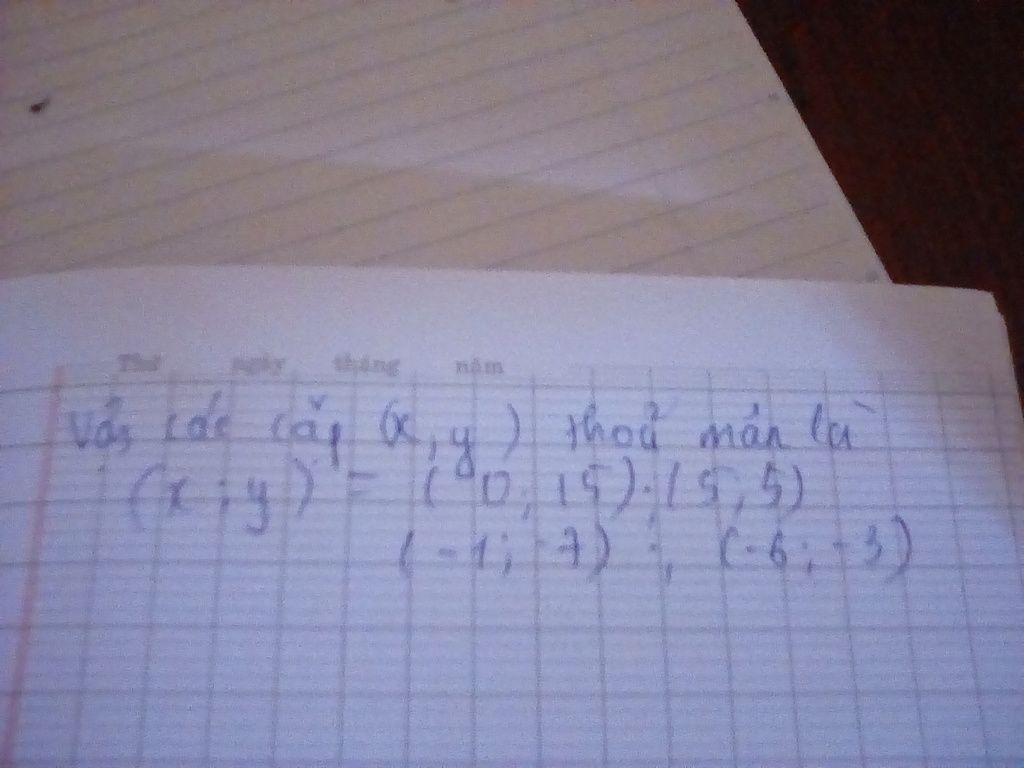 Thứ ngày tháng năm
Vậy các cặp (x, y) thoả mãn là
(x ; y) = (0; 15); (5; 5)
(-1; -7) ; (-6; -3)